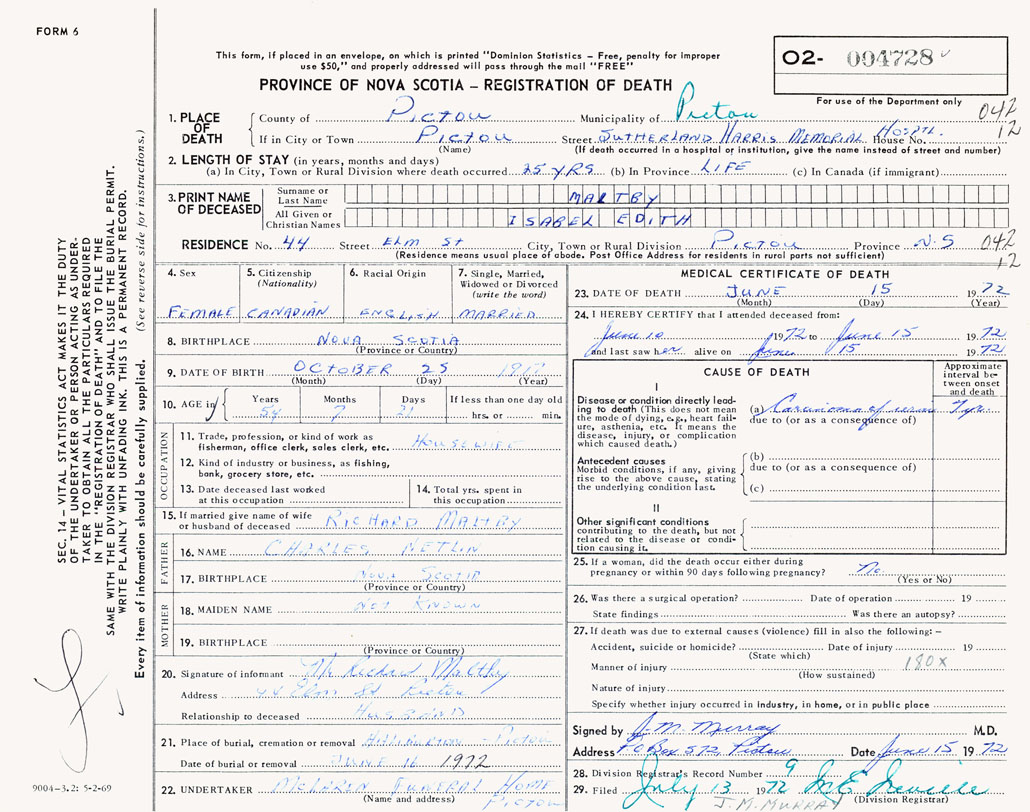 FORM 6
This form, if placed in an envelope, on which is printed "Dominion Statistics – Free, penalty for improper
use $50," and properly addressed will pass through the mail "FREE"
O2- 004728
PROVINCE OF NOVA SCOTIA – REGISTRATION OF DEATH
For use of the Department only
042
12
1. PLACE OF DEATH
County of PICTOU Municipality of Pictou
If in City or Town PICTOU Street SUTHERLAND HARRIS MEMORIAL HOSPTL. House No.
(Name) (If death occurred in a hospital or institution, give the name instead of street and number)
2. LENGTH OF STAY (in years, months and days)
(a) In City, Town or Rural Division where death occurred 25 YRS (b) In Province LIFE (c) In Canada (if immigrant)
3. PRINT NAME OF DECEASED
Surname or Last Name MALTBY
All Given or Christian Names ISABEL EDITH
RESIDENCE No. 44 Street ELM ST City, Town or Rural Division PICTOU Province N.S
042
12
(Residence means usual place of abode. Post Office Address for residents in rural parts not sufficient)
4. Sex
FEMALE
5. Citizenship
(Nationality)
CANADIAN
6. Racial Origin
ENGLISH
7. Single, Married,
Widowed or Divorced
(write the word)
MARRIED
8. BIRTHPLACE NOVA SCOTIA
(Province or Country)
9. DATE OF BIRTH OCTOBER 25 1917
(Month) (Day) (Year)
10. AGE in
Years Months Days If less than one day old
54 7 21 hrs. or min.
OCCUPATION
11. Trade, profession, or kind of work as
fishermen, office clerk, sales clerk, etc. HOUSEWIFE
12. Kind of industry or business, as fishing,
bank, grocery store, etc.
13. Date deceased last worked
at this occupation
14. Total yrs. spent in
this occupation
15. If married give name of wife
or husband of deceased RICHARD MALTBY
FATHER
16. NAME CHARLES
17. BIRTHPLACE NOVA SCOTIA
(Province or Country)
MOTHER
18. MAIDEN NAME NOT KNOWN
19. BIRTHPLACE
(Province or Country)
20. Signature of informant Mr Richard Maltby
Address 44 Elm St Pictou
Relationship to deceased HUSBAND
21. Place of burial, cremation or removal HALIBURTON - PICTOU
Date of burial or removal JUNE 16 1972
22. UNDERTAKER MCLAREN FUNERAL HOME
(Name and address) PICTOU
MEDICAL CERTIFICATE OF DEATH
23. DATE OF DEATH JUNE 15 1972
(Month) (Day) (Year)
24. I HEREBY CERTIFY that I attended deceased from:
June 10 1972 to June 15 1972
and last saw her alive on June 15 1972
CAUSE OF DEATH
Approximate
interval be-
tween onset
and death
I
Disease or condition directly lead-
ing to death (This does not mean
the mode of dying, e.g., heart fail-
ure, asthenia, etc. It means the
disease, injury, or complication
which caused death.)
(a) Carcinoma of
due to (or as a consequence of)
Antecedent causes
Morbid conditions, if any, giving
rise to the above cause, stating
the underlying condition last.
(b)
due to (or as a consequence of)
(c)
II
Other significant conditions
contributing to the death, but not
related to the disease or condi-
tion causing it.
25. If a woman, did the death occur either during
pregnancy or within 90 days following pregnancy? No
(Yes or No)
26. Was there a surgical operation? Date of operation 19
State findings Was there an autopsy?
27. If death was due to external causes (violence) fill in also the following: –
Accident, suicide or homicide? Date of injury 19
(State which)
Manner of injury 180X
(How sustained)
Nature of injury
Specify whether injury occurred in industry, in home, or in public place
Signed by J.M. Murray M.D.
Address PO Box 572 Pictou Date June 15 1972
28. Division Registrar's Record Number 9
29. Filed July 13 1972
(Division Registrar)
J. M. MURRAY
SEC. 14 – VITAL STATISTICS ACT MAKES IT THE DUTY
OF THE UNDERTAKER OR PERSON ACTING AS UNDER-
TAKER TO OBTAIN ALL THE PARTICULARS REQUIRED
IN THE "REGISTRATION OF DEATH" AND TO FILE THE
SAME WITH THE DIVISION REGISTRAR WHO SHALL ISSUE THE BURIAL PERMIT.
WRITE PLAINLY WITH UNFADING INK. THIS IS A PERMANENT RECORD.
Every item of information should be carefully supplied. (See reverse side for instructions.)
9004-3.2: 5-2-69